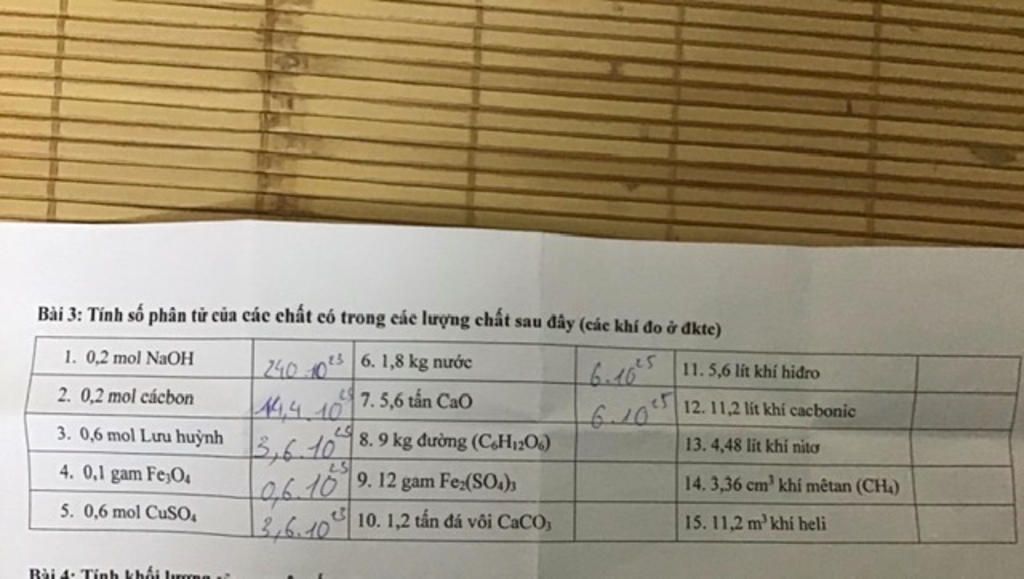 Bài 3: Tính số phân tử của các chất có trong các lượng chất sau đây (các khí đo ở đktc)
1. 0,2 mol NaOH 240.10²³ 6. 1,8 kg nước 6.10²⁵ 11. 5,6 lít khí hiđro
2. 0,2 mol cácbon 14,4.10²³ 7. 5,6 tấn CaO 6.10²⁵ 12. 11,2 lít khí cacbonic
3. 0,6 mol Lưu huỳnh 3,6.10²³ 8. 9 kg đường (C₆H₁₂O₆) 13. 4,48 lít khí nitơ
4. 0,1 gam Fe₃O₄ 0,6.10²³ 9. 12 gam Fe₂(SO₄)₃ 14. 3,36 cm³ khí mêtan (CH₄)
5. 0,6 mol CuSO₄ 3,6.10²³ 10. 1,2 tấn đá vôi CaCO₃ 15. 11,2 m³ khí heli
Bài 4: Tính khối lượng